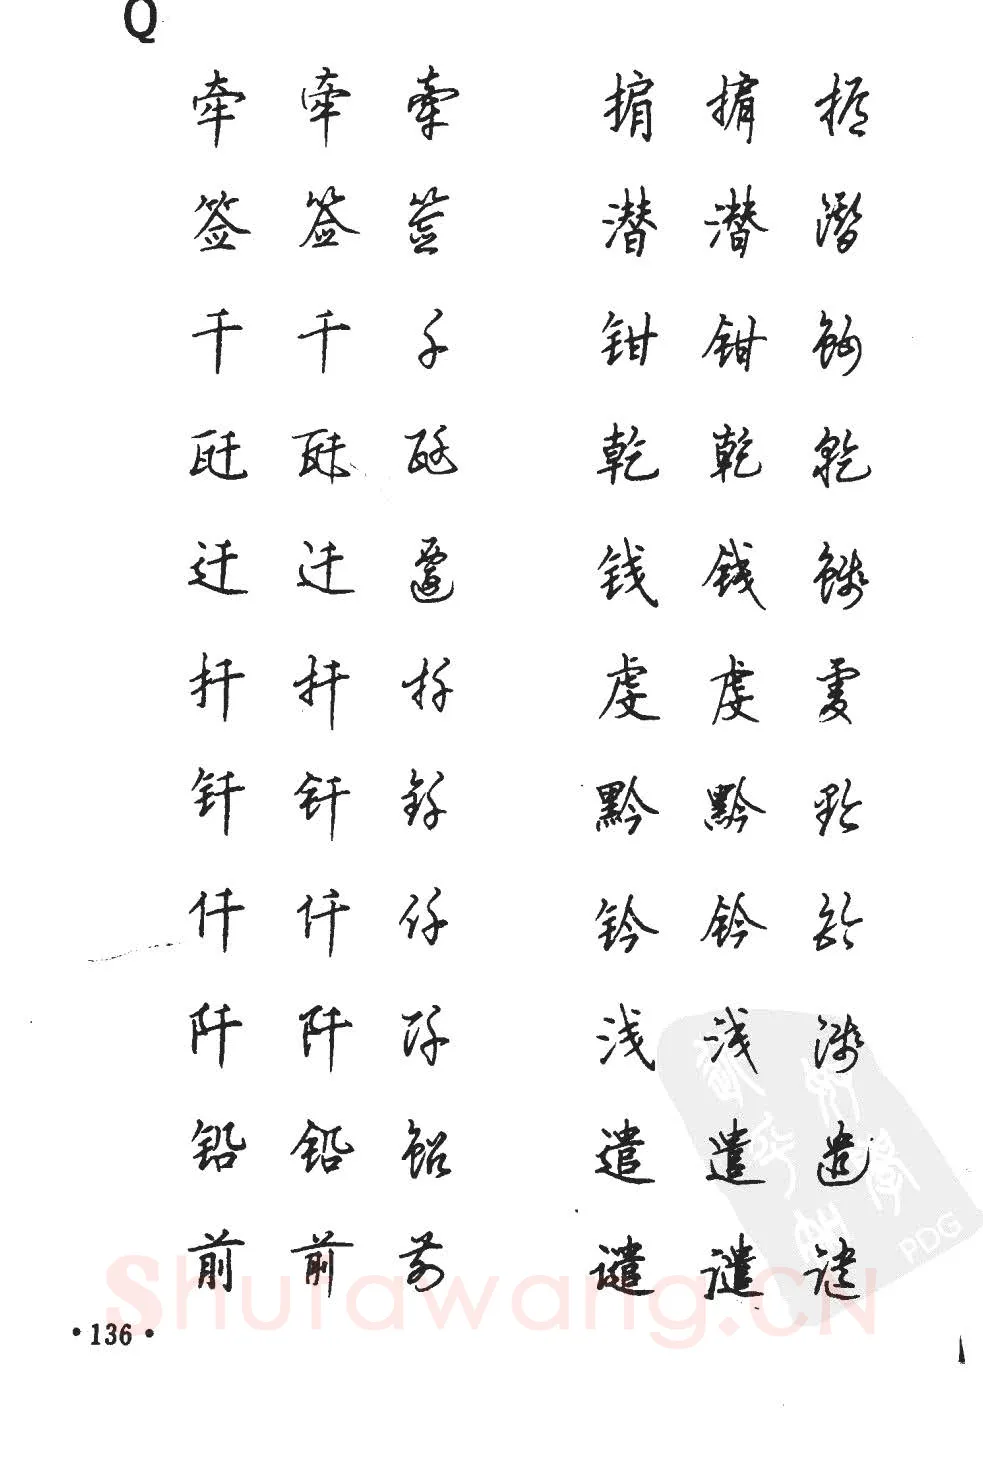 Q
牵 牵 牵 掮 掮 掮
签 签 签 潜 潜 潜
千 千 千 钳 钳 钳
瓩 瓩 瓩 乾 乾 乾
迁 迁 遷 钱 钱 钱
扦 扦 扦 虔 虔 虔
钎 钎 钎 黔 黔 黔
仟 仟 仟 钤 钤 钤
阡 阡 阡 浅 浅 浅
铅 铅 铅 遣 遣 遣
前 前 前 谴 谴 谴
Shufawang.CN
PDG
·136·